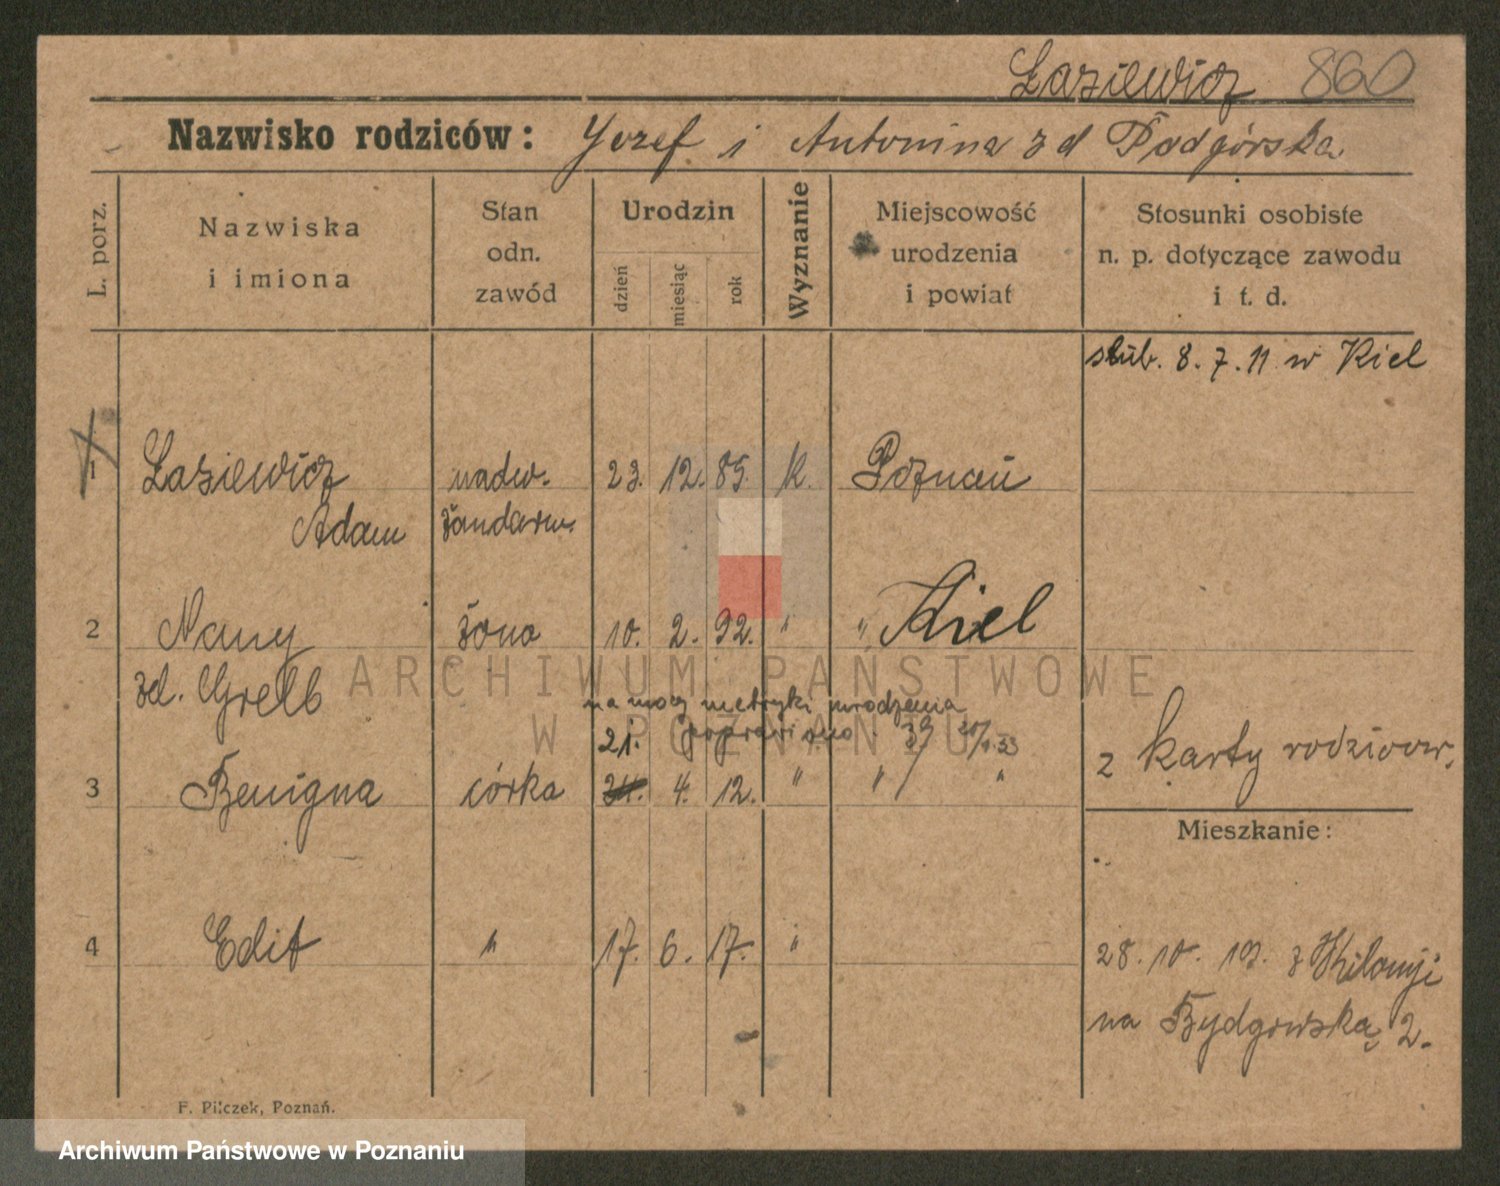 Łaziewicz 860
Nazwisko rodziców: Józef i Antonina zd Podgórska
L. porz.
Nazwiska
i imiona
Stan
odn.
zawód
Urodzin
dzień
miesiąc
rok
Wyznanie
Miejscowość
urodzenia
i powiat
Stosunki osobiste
n. p. dotyczące zawodu
i t. d.
ślub. 8. 7. 11 w Kiel
1 Łaziewicz nadw. 23. 12. 85. k. Poznań
Adam żandarm.
2 Nany żona 10. 2. 92. " " Kiel
zd. Grelb
na mocy metryki urodzenia
21. poprawiono
z karty rodzicow.
3 Benigna córka 24. 4. 12. " " "
Mieszkanie:
4 Edit " 17. 6. 17. "
28. 10. 19. z Kilonji
na Bydgowską 2.
F. Pilczek, Poznań.
ARCHIWUM PAŃSTWOWE
W POZNANIU
Archiwum Państwowe w Poznaniu